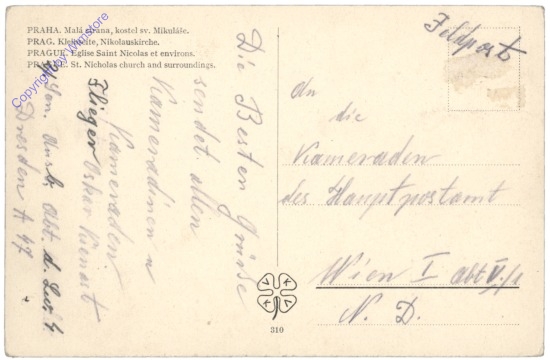 PRAHA. Malá strana, kostel sv. Mikuláše.
PRAG. Kleinseite, Nikolauskirche.
PRAGUE. Eglise Saint Nicolas et environs.
PRAGUE. St. Nicholas church and surroundings.
Copyright by Ministore
Feldpost
An
die
Kameraden
des Hauptpostamt
Wien I Abt V/1
N. D.
Die Besten Grüße
sendet allen
Kameradinen u
Kameraden
Flieger Oskar
Abt. d. Lw.
Dresden A 47
K V K V
310